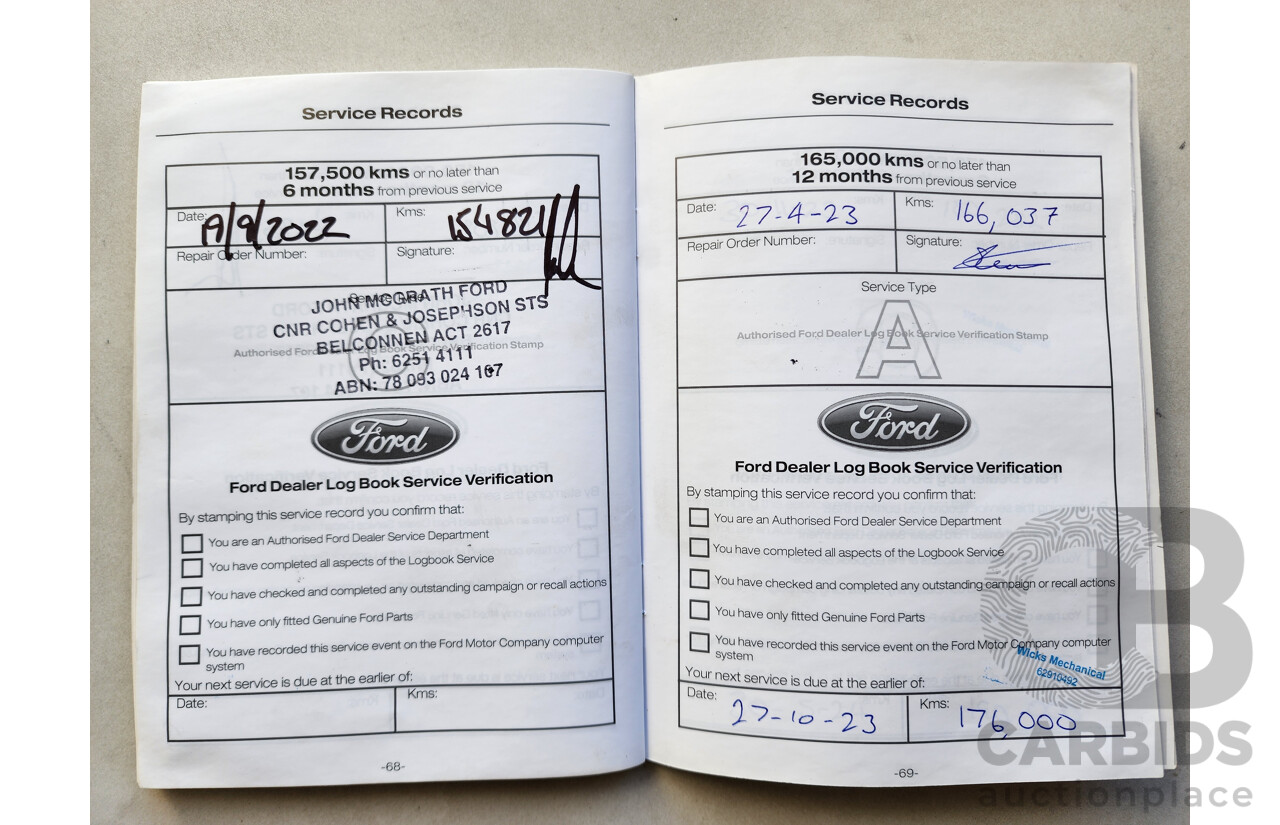 Service Records
157,500 kms or no later than
6 months from previous service
Date: /9/2022
Kms: 154821
Repair Order Number:
Signature:
Service Type
JOHN MCGRATH FORD
CNR COHEN & JOSEPHSON STS
BELCONNEN ACT 2617
Authorised Ford Dealer Log Book Service Verification Stamp
Ph: 6251 4111
ABN: 78 093 024 167
Ford
Ford Dealer Log Book Service Verification
By stamping this service record you confirm that:
You are an Authorised Ford Dealer Service Department
You have completed all aspects of the Logbook Service
You have checked and completed any outstanding campaign or recall actions
You have only fitted Genuine Ford Parts
You have recorded this service event on the Ford Motor Company computer
system
Your next service is due at the earlier of:
Date:
Kms:
-68-
Service Records
165,000 kms or no later than
12 months from previous service
Date: 27-4-23
Kms: 166,037
Repair Order Number:
Signature:
Service Type
A
Authorised Ford Dealer Log Book Service Verification Stamp
Ford
Ford Dealer Log Book Service Verification
By stamping this service record you confirm that:
You are an Authorised Ford Dealer Service Department
You have completed all aspects of the Logbook Service
You have checked and completed any outstanding campaign or recall actions
You have only fitted Genuine Ford Parts
You have recorded this service event on the Ford Motor Company computer
system
Wicks Mechanical
62910492
Your next service is due at the earlier of:
Date: 27-10-23
Kms: 176,000
-69-
CB
CARBIDS
auctionplace